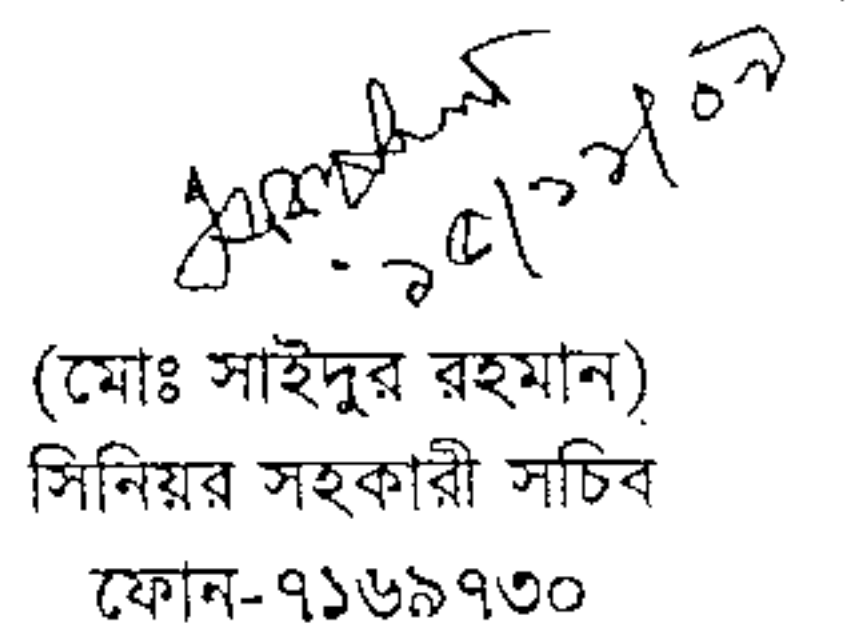 (মোঃ সাইদুর রহমান)
সিনিয়র সহকারী সচিব
ফোন-৭১৬৯৭৩০